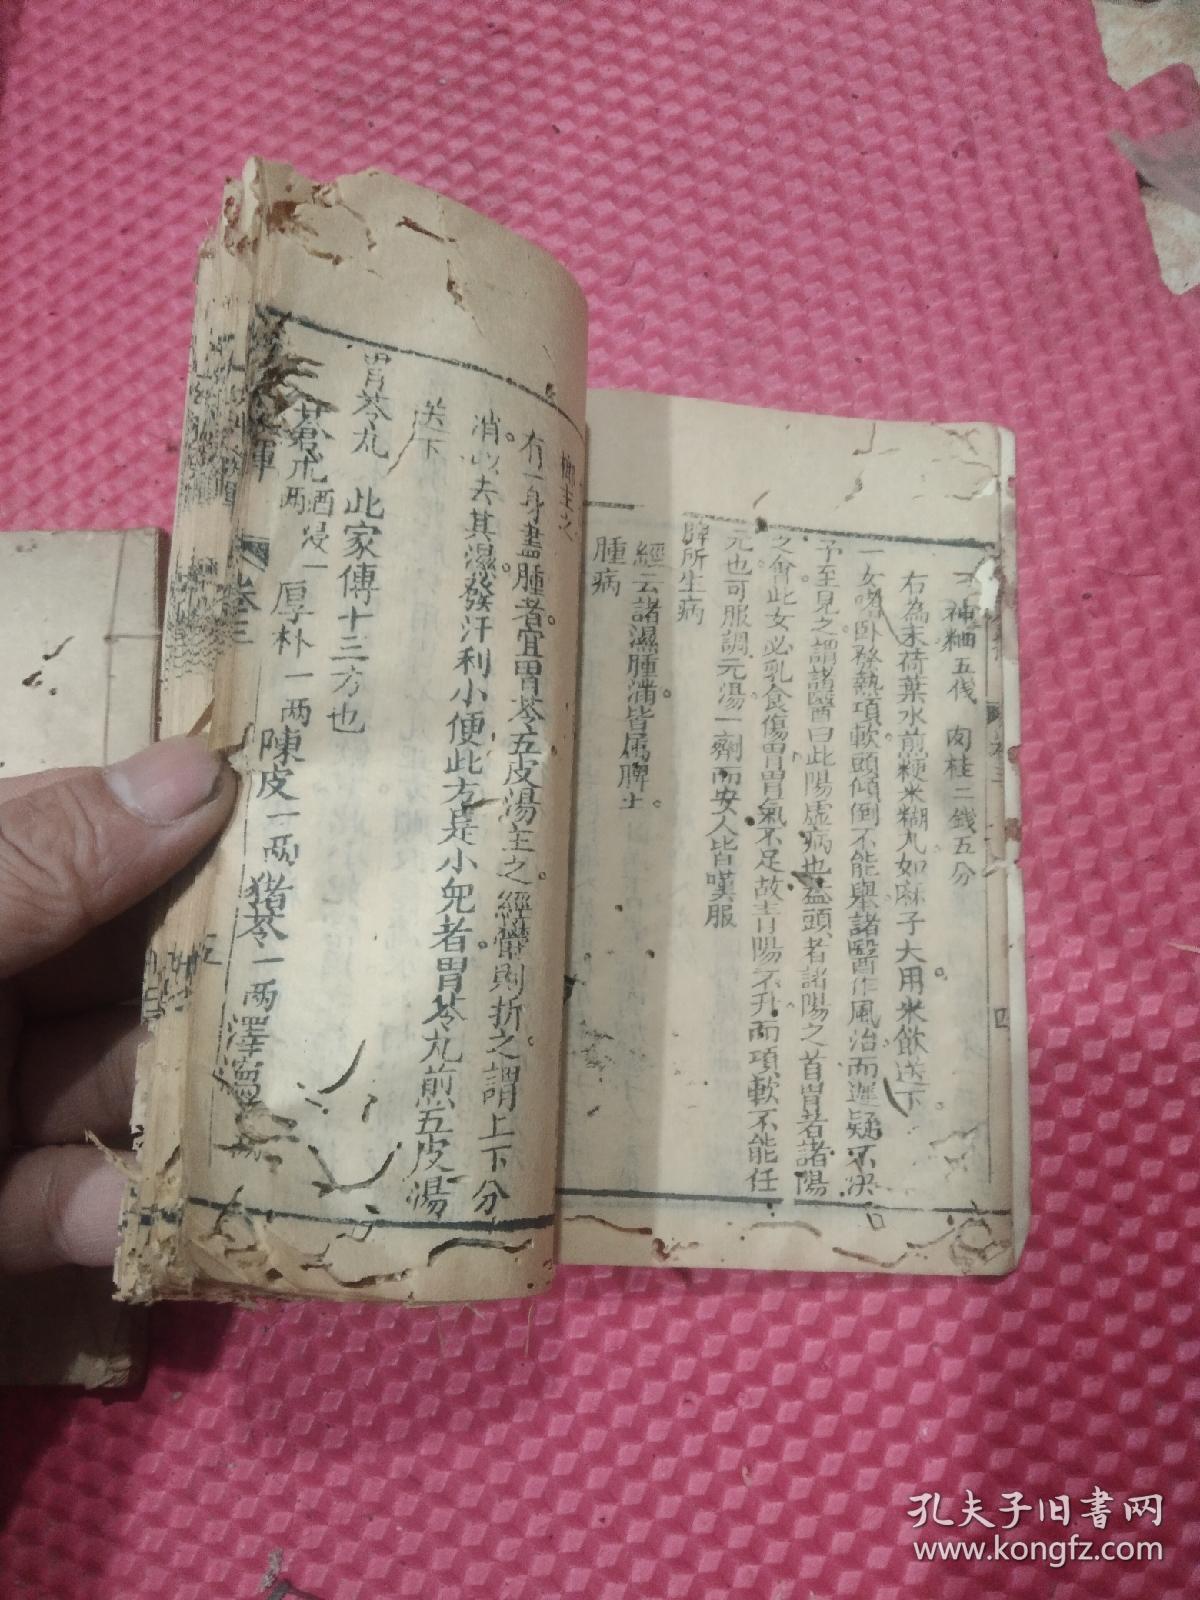 神麯五伐 肉桂二錢五分
右為末荷葉水煎粳米糊丸如麻子大用米飲送下
一女嗜卧發熱項軟頭傾倒不能舉諸醫作風治而遲疑不決
予至見之謂諸醫曰此陽虛病也葢頭者諸陽之首胃者諸陽
之會此女必乳食傷胃胃氣不足故青陽不升而項軟不能任
元也可服調元湯一劑而安人皆嘆服
脾所生病
經云諸濕腫滿皆属脾土
腫病
卷三
四
主之
有一身盡腫者宜胃苓五皮湯主之經
則折之謂上下分
消以去其濕發汗利小便此方是小兒者胃苓丸煎五皮湯
送下
胃苓丸 此家傳十三方也
蒼朮酒浸一两 厚朴一两 陳皮一两 猪苓一两 澤瀉
卷三
五
孔夫子旧书网
www.kongfz.com